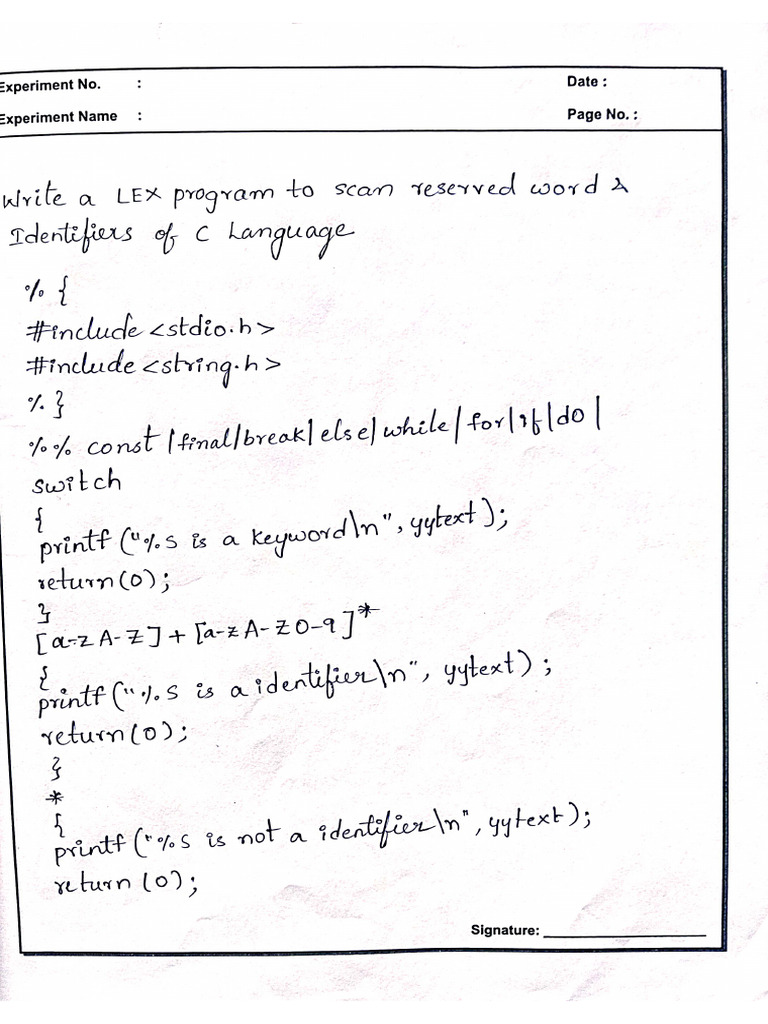 Experiment No. : Date :
Experiment Name : Page No. :
Write a LEX program to scan reserved word &
Identifiers of C Language
% {
#include <stdio.h>
#include <string.h>
% }
%% const |final|break|else|while|for|if|do|
switch
{
printf ("%s is a keyword\n", yytext);
return(0);
}
[a-z A-Z]+[a-z A-Z 0-9]*
{
printf ("%s is a identifier\n", yytext);
return(0);
}
*
{
printf ("%s is not a identifier\n", yytext);
return (0);
Signature: